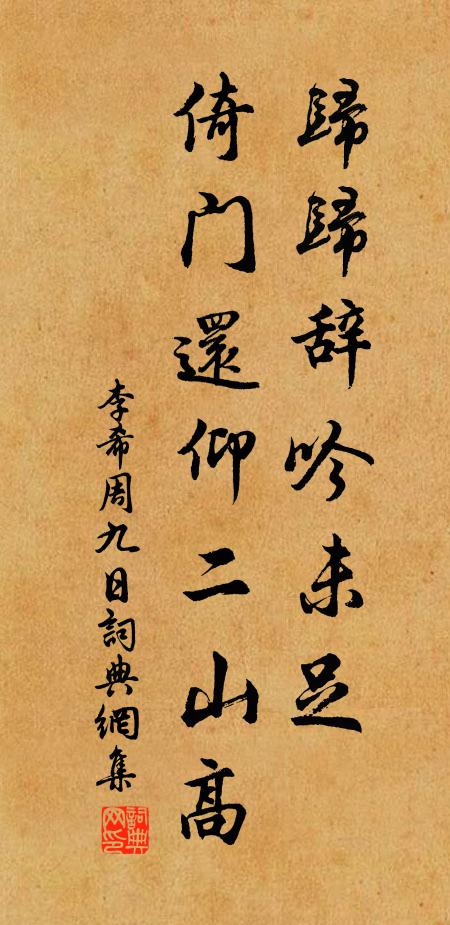 歸歸辞吟未足
倚門還仰二山高
李希周九日詞典網集
詞典網印